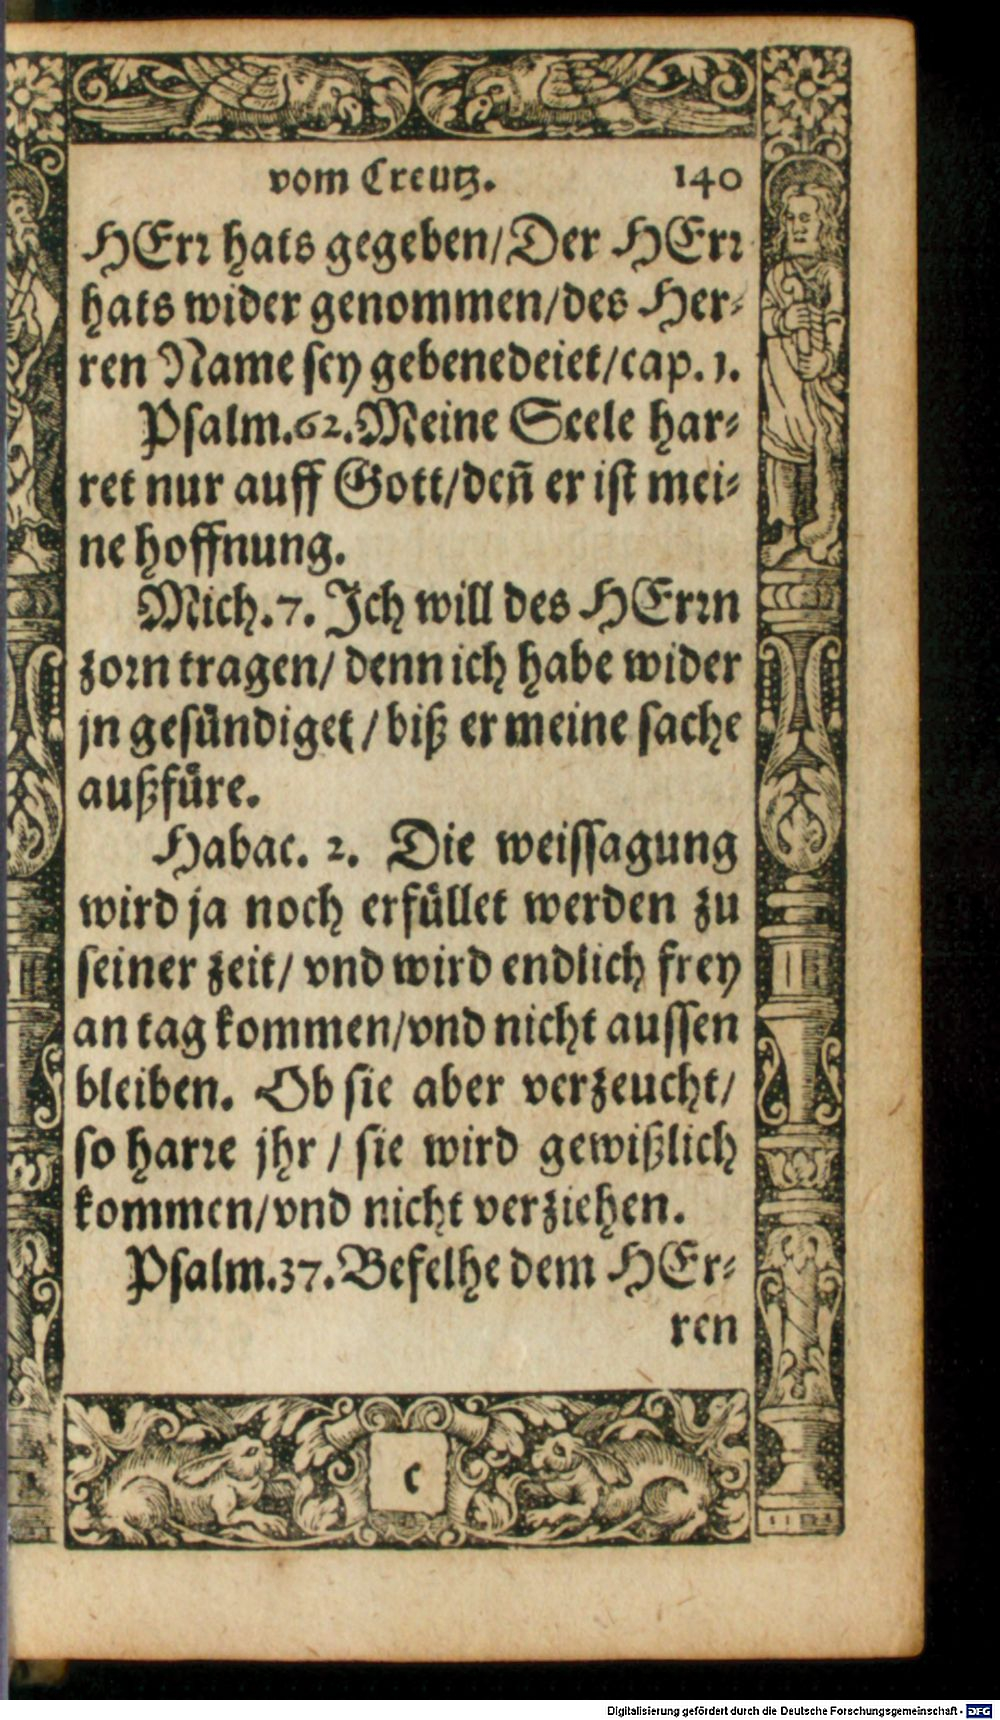 vom Creutz. 140
HErꝛ hats gegeben/Der HErꝛ
hats wider genommen/des Her⸗
ren Name sey gebenedeiet/cap. 1.
Psalm.62.Meine Seele har⸗
ret nur auff Gott/deñ er ist mei⸗
ne hoffnung.
Mich.7. Ich will des HErꝛn
zoꝛn tragen/ denn ich habe wider
jn gesuͤndiget/biß er meine sache
außfuͤre.
Habac. 2. Die weissagung
wird ja noch erfuͤllet werden zu
seiner zeit/ vnd wird endlich frey
an tag kommen/vnd nicht aussen
bleiben. Ob sie aber verzeucht/
so harꝛe jhr/ sie wird gewißlich
kommen/vnd nicht verziehen.
Psalm.37.Befelhe dem HEr⸗
ren
c
Digitalisierung gefördert durch die Deutsche Forschungsgemeinschaft - DFG